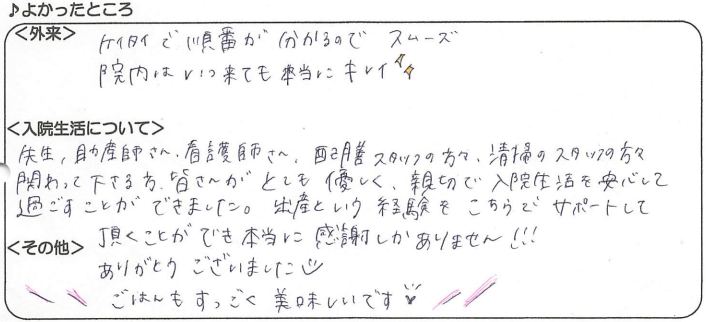 ♪よかったところ
<外来> ケイタイで順番が分かるので スムーズ
院内はいつ来ても本当にキレイ
<入院生活について>
先生，助産師さん、看護師さん、配膳スタッフの方々、清掃のスタッフの方々
関わって下さる方、皆さんがとても優しく、親切で入院生活を安心して
過ごすことができました。出産という経験をこちらでサポートして
頂くことができ本当に感謝しかありません!!!
<その他>
ありがとうございました
ごはんもすっごく美味しいです